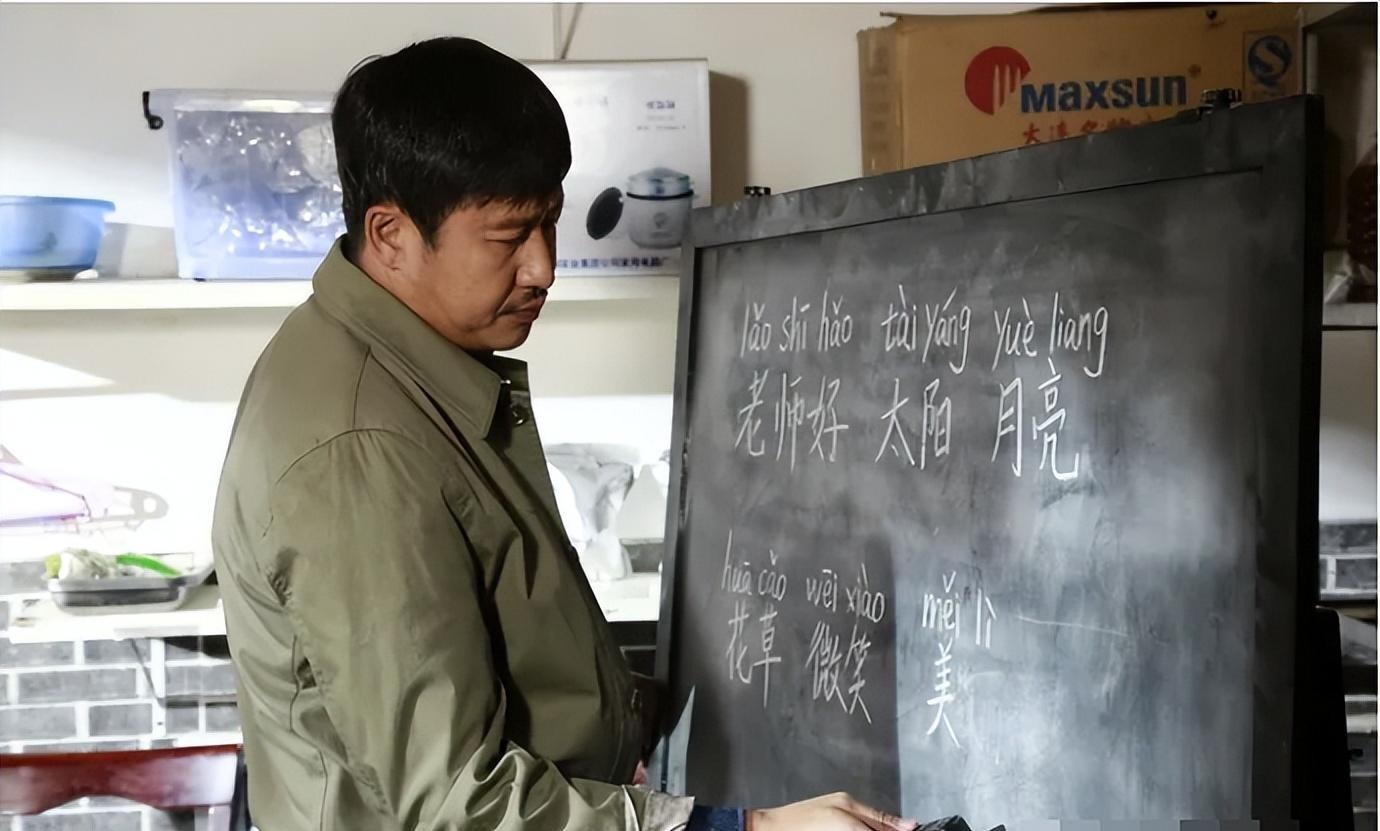 MAXSUN
lǎo shī hǎo tài yáng yuè liang
老师好 太阳 月亮
huā cǎo wēi xiào měi lì
花草 微笑 美